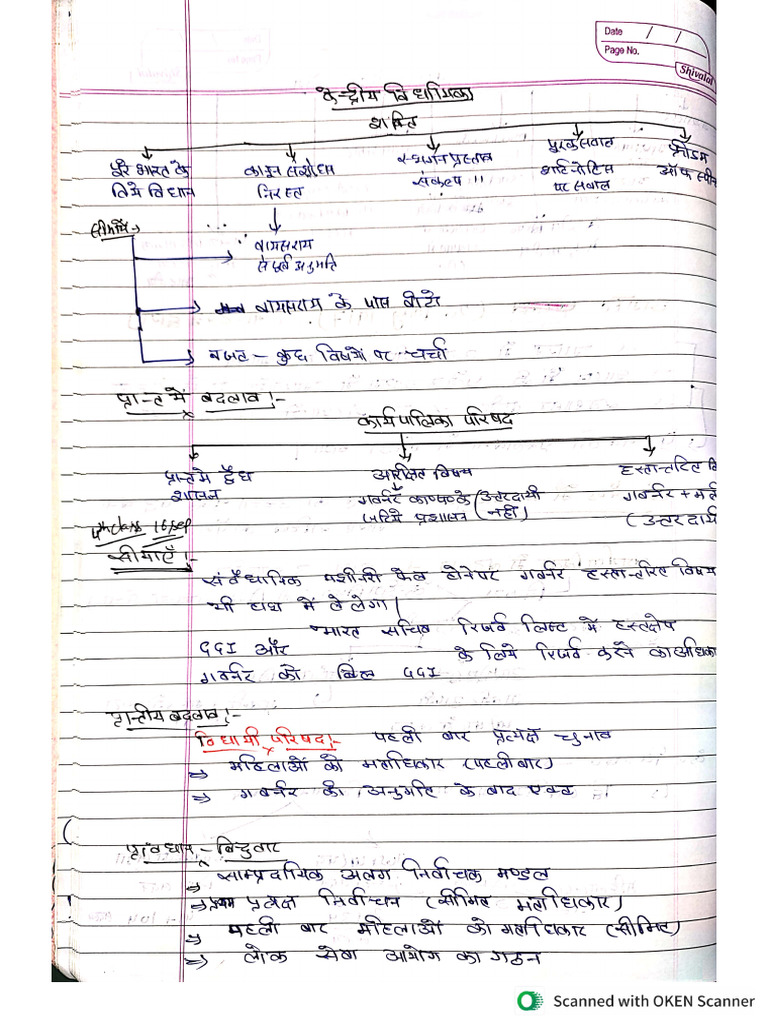 Date / /
Page No.
Shivalal
केन्द्रीय विधायिका
शक्ति
पूरे भारत के लिये विधान
कानून संशोधन निरस्त
स्थगन प्रस्ताव संकल्प "
पूरक सवाल शार्ट नोटिस पर सवाल
फ्रीडम ऑफ स्पीच
सीमायें:-
वायसराय से पूर्व अनुमति
वायसराय के पास वीटो
बजट - कुछ विषयों पर चर्चा
प्रान्त में बदलाव :-
कार्यपालिका परिषद
प्रान्त मे द्वैध शासन
आरक्षित विषय
गवर्नर काप०के जरिये प्रशासन (उत्तरदायी नहीं)
हस्तान्तरित वि
गवर्नर + मं
(उत्तरदाय
4th class 16 sep
सीमाएँ :-
संवैधानिक मशीनरी फेल होनेपर गवर्नर हस्तान्तरित विषय
भी हाथ में ले लेगा।
भारत सचिव रिजर्व लिस्ट में हस्तक्षेप
GGI और
गवर्नर को बिल GGI के लिये रिजर्व करने का अधिका
प्रान्तीय बदलाव :-
विधायी परिषद :- पहली बार प्रत्यक्ष चुनाव
⇒ महिलाओं को मताधिकार (पहली बार)
⇒ गवर्नर की अनुमति के बाद एक्ट
प्रावधान - बिन्दुवार
⇒ साम्प्रदायिक अलग निर्वाचक मण्डल
⇒ प्रत्यक्ष निर्वाचन (सीमित मताधिकार)
⇒ पहली बार महिलाओं को मताधिकार (सीमित)
⇒ लोक सेवा आयोग का गठन
Scanned with OKEN Scanner